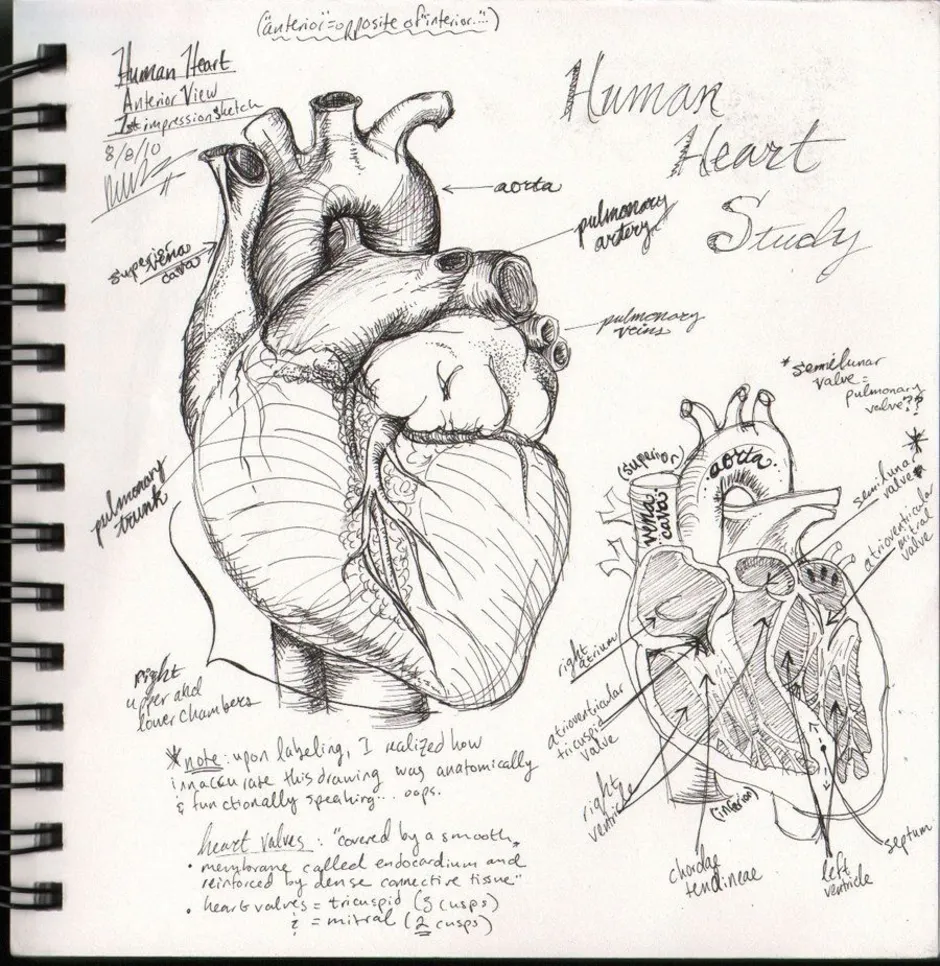 ("anterior"=opposite of "inferior...")
Human Heart
Anterior View
1st impression sketch
8/8/10
Human
Heart
Study
aorta
pulmonary
artery
superior
vena
cava
pulmonary
veins
pulmonary
trunk
right
upper and
lower chambers
* semilunar
valve =
pulmonary
valve??
*
(superior)
vena
cava
aorta
semilunar
valve*
atrioventricular
mitral
valve
right
atrium
atrioventricular
tricuspid
valve
right
ventricle
(inferior)
chordae
tendineae
left
ventricle
septum
*note: upon labeling, I realized how
innaccurate this drawing was anatomically
& functionally speaking... oops.
heart valves: "covered by a smooth
• membrane called endocardium and
reinforced by dense connective tissue"
• heart valves = tricuspid (3 cusps)
& = mitral (2 cusps)